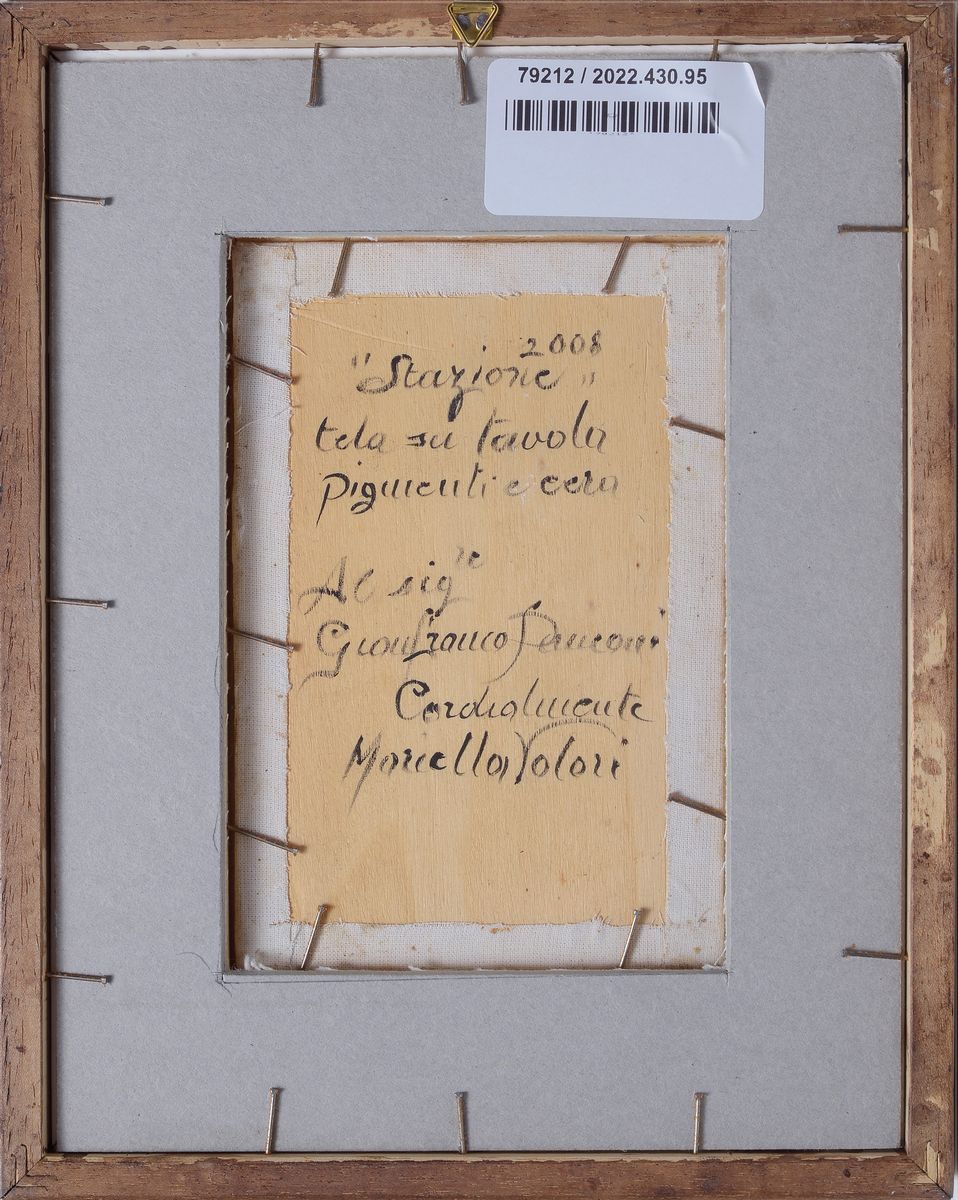 79212 / 2022.430.95
2008
"Stazione"
tela su tavola
pigmenti e cera
Al sig.re
Gianfranco
Cordialmente
Mariella